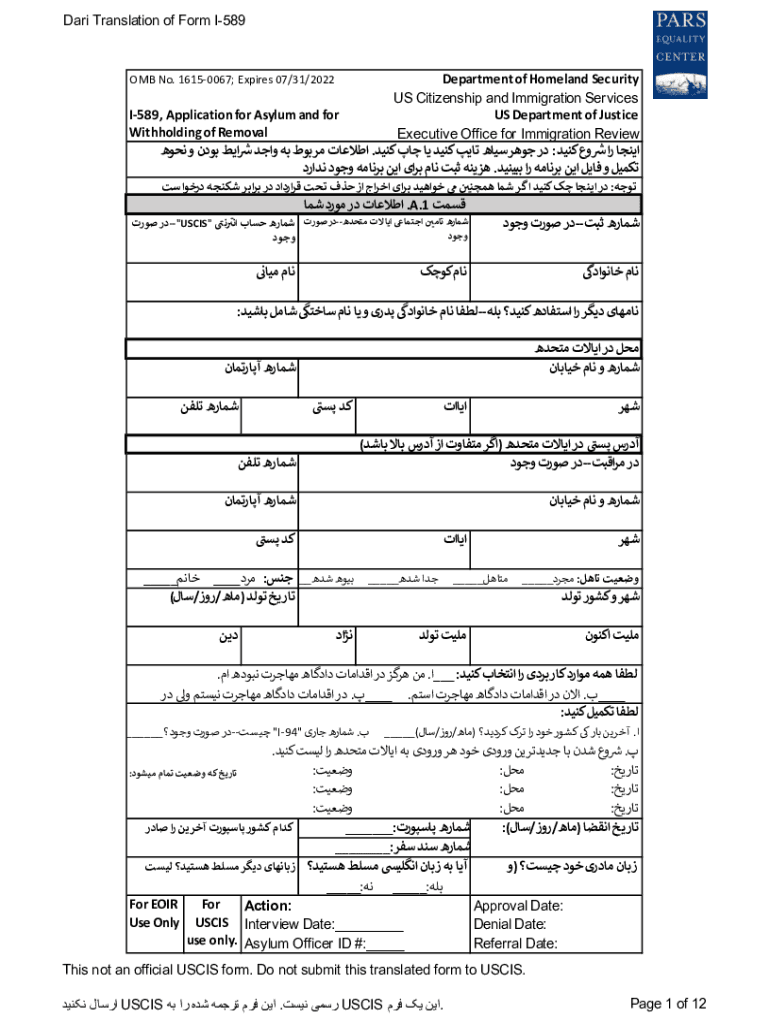 Dari Translation of Form I-589
PARS
EQUALITY
CENTER
OMB No. 1615-0067; Expires 07/31/2022
Department of Homeland Security
US Citizenship and Immigration Services
I-589, Application for Asylum and for
US Department of Justice
Withholding of Removal
Executive Office for Immigration Review
اینجا را شروع کنید: در جوهر سیاه تایپ کنید یا چاپ کنید. اطلاعات مربوط به واجد شرایط بودن و نحوه
تکمیل و فایل این برنامه را ببینید. هزینه ثبت نام برای این برنامه وجود ندارد
توجه: در اینجا چک کنید اگر شما همچنین می خواهید برای اخراج از حذف تحت قرارداد در برابر شکنجه درخواست
قسمت A.1. اطلاعات در مورد شما
شماره ثبت--در صورت وجود
شماره تامین اجتماعی ایالات متحده--در صورت
وجود
شماره حساب انترنتی "USCIS"--در صورت
وجود
نام خانوادگی
نام کوچک
نام میانی
نامهای دیگر را استفاده کنید؟ بله--لطفا نام خانوادگی پدری و یا نام ساختگی شامل باشید:
محل در ایالات متحده
شماره و نام خیابان
شماره آپارتمان
شهر
ایاات
کد پستی
شماره تلفن
آدرس پستی در ایالات متحده (اگر متفاوت از آدرس بالا باشد)
در مراقبت--در صورت وجود
شماره تلفن
شماره و نام خیابان
شماره آپارتمان
شهر
ایاات
کد پستی
وضعیت تاهل: مجرد_____ متاهل_____ جدا شده_____ بیوه شده__
جنس: مرد____ خانم_____
شهر و کشور تولد
تاریخ تولد (ماه/روز/سال)
ملیت اکنون
ملیت تولد
نژاد
دین
لطفا همه موارد کاربردی را انتخاب کنید: ___ا. من هرگز در اقدامات دادگاه مهاجرت نبوده ام.
____ب. الان در اقدامات دادگاه مهاجرت استم. ____پ. در اقدامات دادگاه مهاجرت نیستم ولی در
لطفا تکمیل کنید:
ا. آخرین بار کی کشور خود را ترک کردید؟ (ماه/روز/سال)_____ ب. شماره جاری "I-94" چیست--در صورت وجود؟______
پ. شروع شدن با جدیدترین ورودی خود هر ورودی به ایالات متحده را لیست کنید.
تاریخ: محل: وضعیت: تاریخ که وضعیت تمام میشود:
تاریخ: محل: وضعیت:
تاریخ: محل: وضعیت:
تاریخ انقضا (ماه/روز/سال):
شماره پاسپورت:_______
کدام کشور پاسپورت آخرین را صادر
شماره سند سفر:________
زبان مادری خود چیست؟ (و
آیا به زبان انگلیسی مسلط هستید؟
زبانهای دیگر مسلط هستید؟ لیست
بله:_____ نه:_____
For EOIR
Use Only
For
USCIS
use only.
Action:
Interview Date:__________
Asylum Officer ID #:_____
Approval Date:
Denial Date:
Referral Date:
This not an official USCIS form. Do not submit this translated form to USCIS.
این یک فرم USCIS رسمی نیست. این فرم ترجمه شده را به USCIS ارسال نکنید.
Page 1 of 12